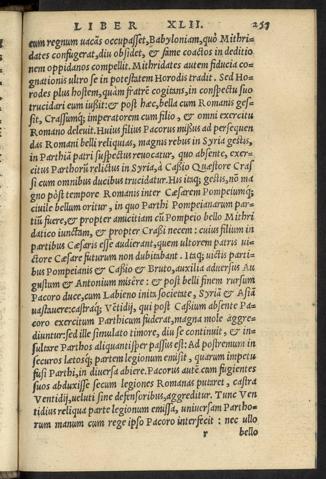 LIBER XLII. 257
eum regnum uacãs occupasset, Babyloniam, quò Mithri-
dates confugerat, diu obsidet, & fame coactos in deditio
nem oppidanos compellit. Mithridates autem fiducia co-
gnationis ultro se in potestatem Horodis tradit. Sed Ho-
rodes plus hostem, quàm fratrẽ cogitans, in conspectu suo
trucidari eum iußit: & post hæc, bella cum Romanis ges-
sit, Crassumq; imperatorem cum filio, & omni exercitu
Romano deleuit. Huius filius Pacorus missus ad persequen
das Romani belli reliquias, magnis rebus in Syria gestis,
in Parthiã patri suspectus reuocatur, quo absente, exer-
citus Parthorũ relictus in Syria, à Caßio Quæstore Cras
si cum omnibus ducibus trucidatur. His itaq; gestis, nõ ma
gno pòst tempore Romanis inter Cæsarem Pompeiumq́;
ciuile bellum oritur, in quo Parthi Pompeianarum par-
tiũ fuere, & propter amicitiam cũ Pompeio bello Mithri
datico iunctam, & propter Crassi necem: cuius filium in
partibus Cæsaris esse audierant, quem ultorem patris ui-
ctore Cæsare futurum non dubitabant. Itaq; uictis parti-
bus Pompeianis & Caßio & Bruto, auxilia aduersus Au
gustum & Antonium misêre: & post belli finem rursum
Pacoro duce, cum Labieno inita societate, Syriã & Asiã
uastauere: castraq́; Vẽtidij, qui post Caßium absente Pa-
coro exercitum Parthicum fuderat, magna mole aggre-
diuntur: sed ille simulato timore, diu se continuit, & in-
sultare Parthos aliquantisper passus est: Ad postremum in
securos lætosq́; partem legionum emisit, quarum impetu
fusi Parthi, in diuersa abiere. Pacorus autẽ cum fugientes
suos abduxisse secum legiones Romanas putaret, castra
Ventidij, ueluti sine defensoribus, aggreditur. Tunc Ven
tidius reliqua parte legionum emissa, uniuersam Partho-
rum manum cum rege ipso Pacoro interfecit: nec ullo
r bello